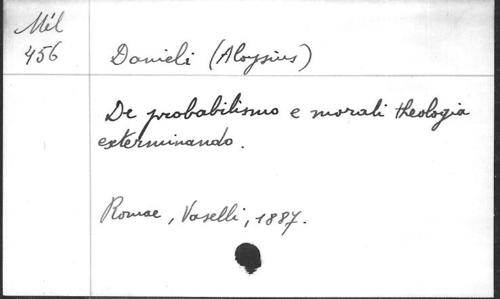 Mél
456
Danieli (Aloysius)
De probabilismo e morali theologia
exterminando.
Romae, Vaselli, 1887.